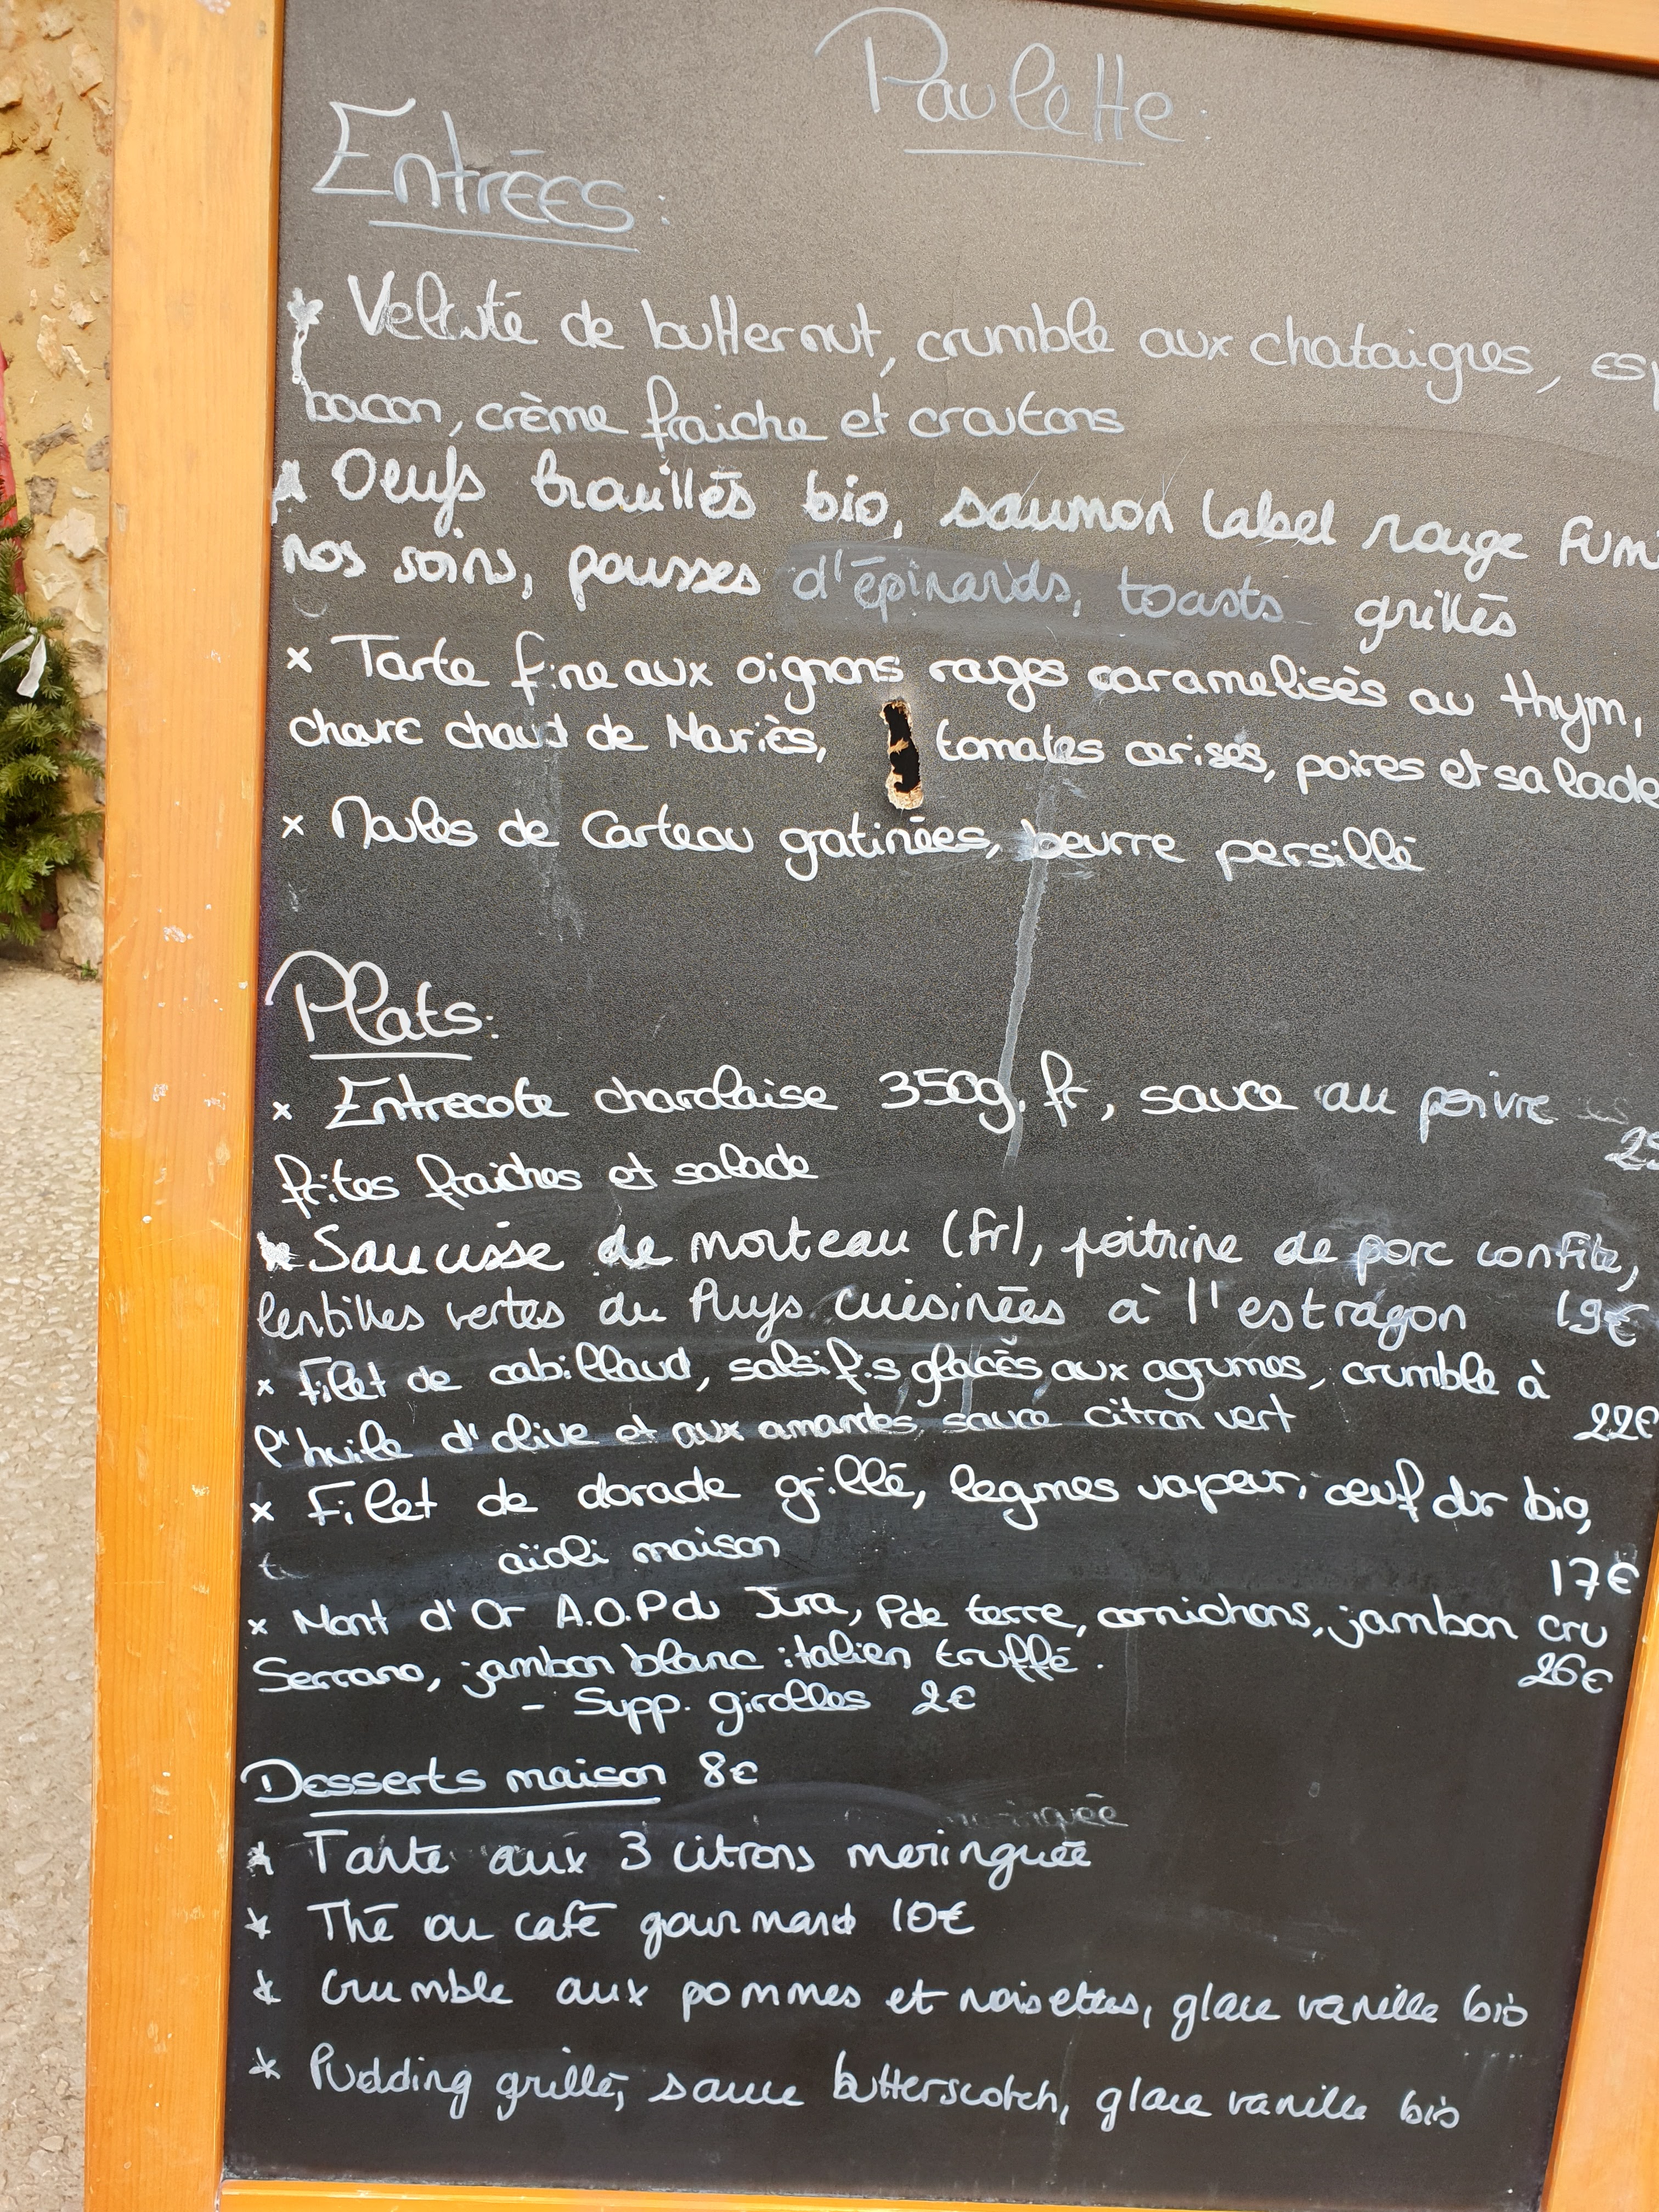 Paulette
Entrées:
* Velouté de butternut, crumble aux chataignes, esp
bacon, crème fraiche et croutons
* Oeufs brouillés bio, saumon label rouge Fum
nos soins, pousses d'épinards, toasts grillés
x Tarte fine aux oignons rouges caramelisés au thym,
chèvre chaud de Mariès, tomates cerises, poires et salade
x Moules de Carteau gratinées, beurre persillé
Plats:
x Entrecote charolaise 350g. fr, sauce au poivre
25
frites fraiches et salade
* Saucisse de morteau (fr), poitrine de porc confite,
lentilles vertes du Puys cuisinées à l'estragon 19€
x Filet de cabillaud, salsifis glacés aux agrumes, crumble à
l'huile d'olive et aux amandes, sauce citron vert 22€
x Filet de dorade grillé, legmes vapeur, oeuf dur bio,
aïoli maison 17€
x Mont d'Or A.O.P du Jura, P de terre, cornichons, jambon cru
Serrano, jambon blanc italien truffé. 26€
- Supp. girolles 2€
Desserts maison 8€
* Tarte aux 3 citrons meringuée
* Thé ou café gourmand 10€
* Crumble aux pommes et noisettes, glace vanille bio
* Pudding grillé, sauce butterscotch, glace vanille bio